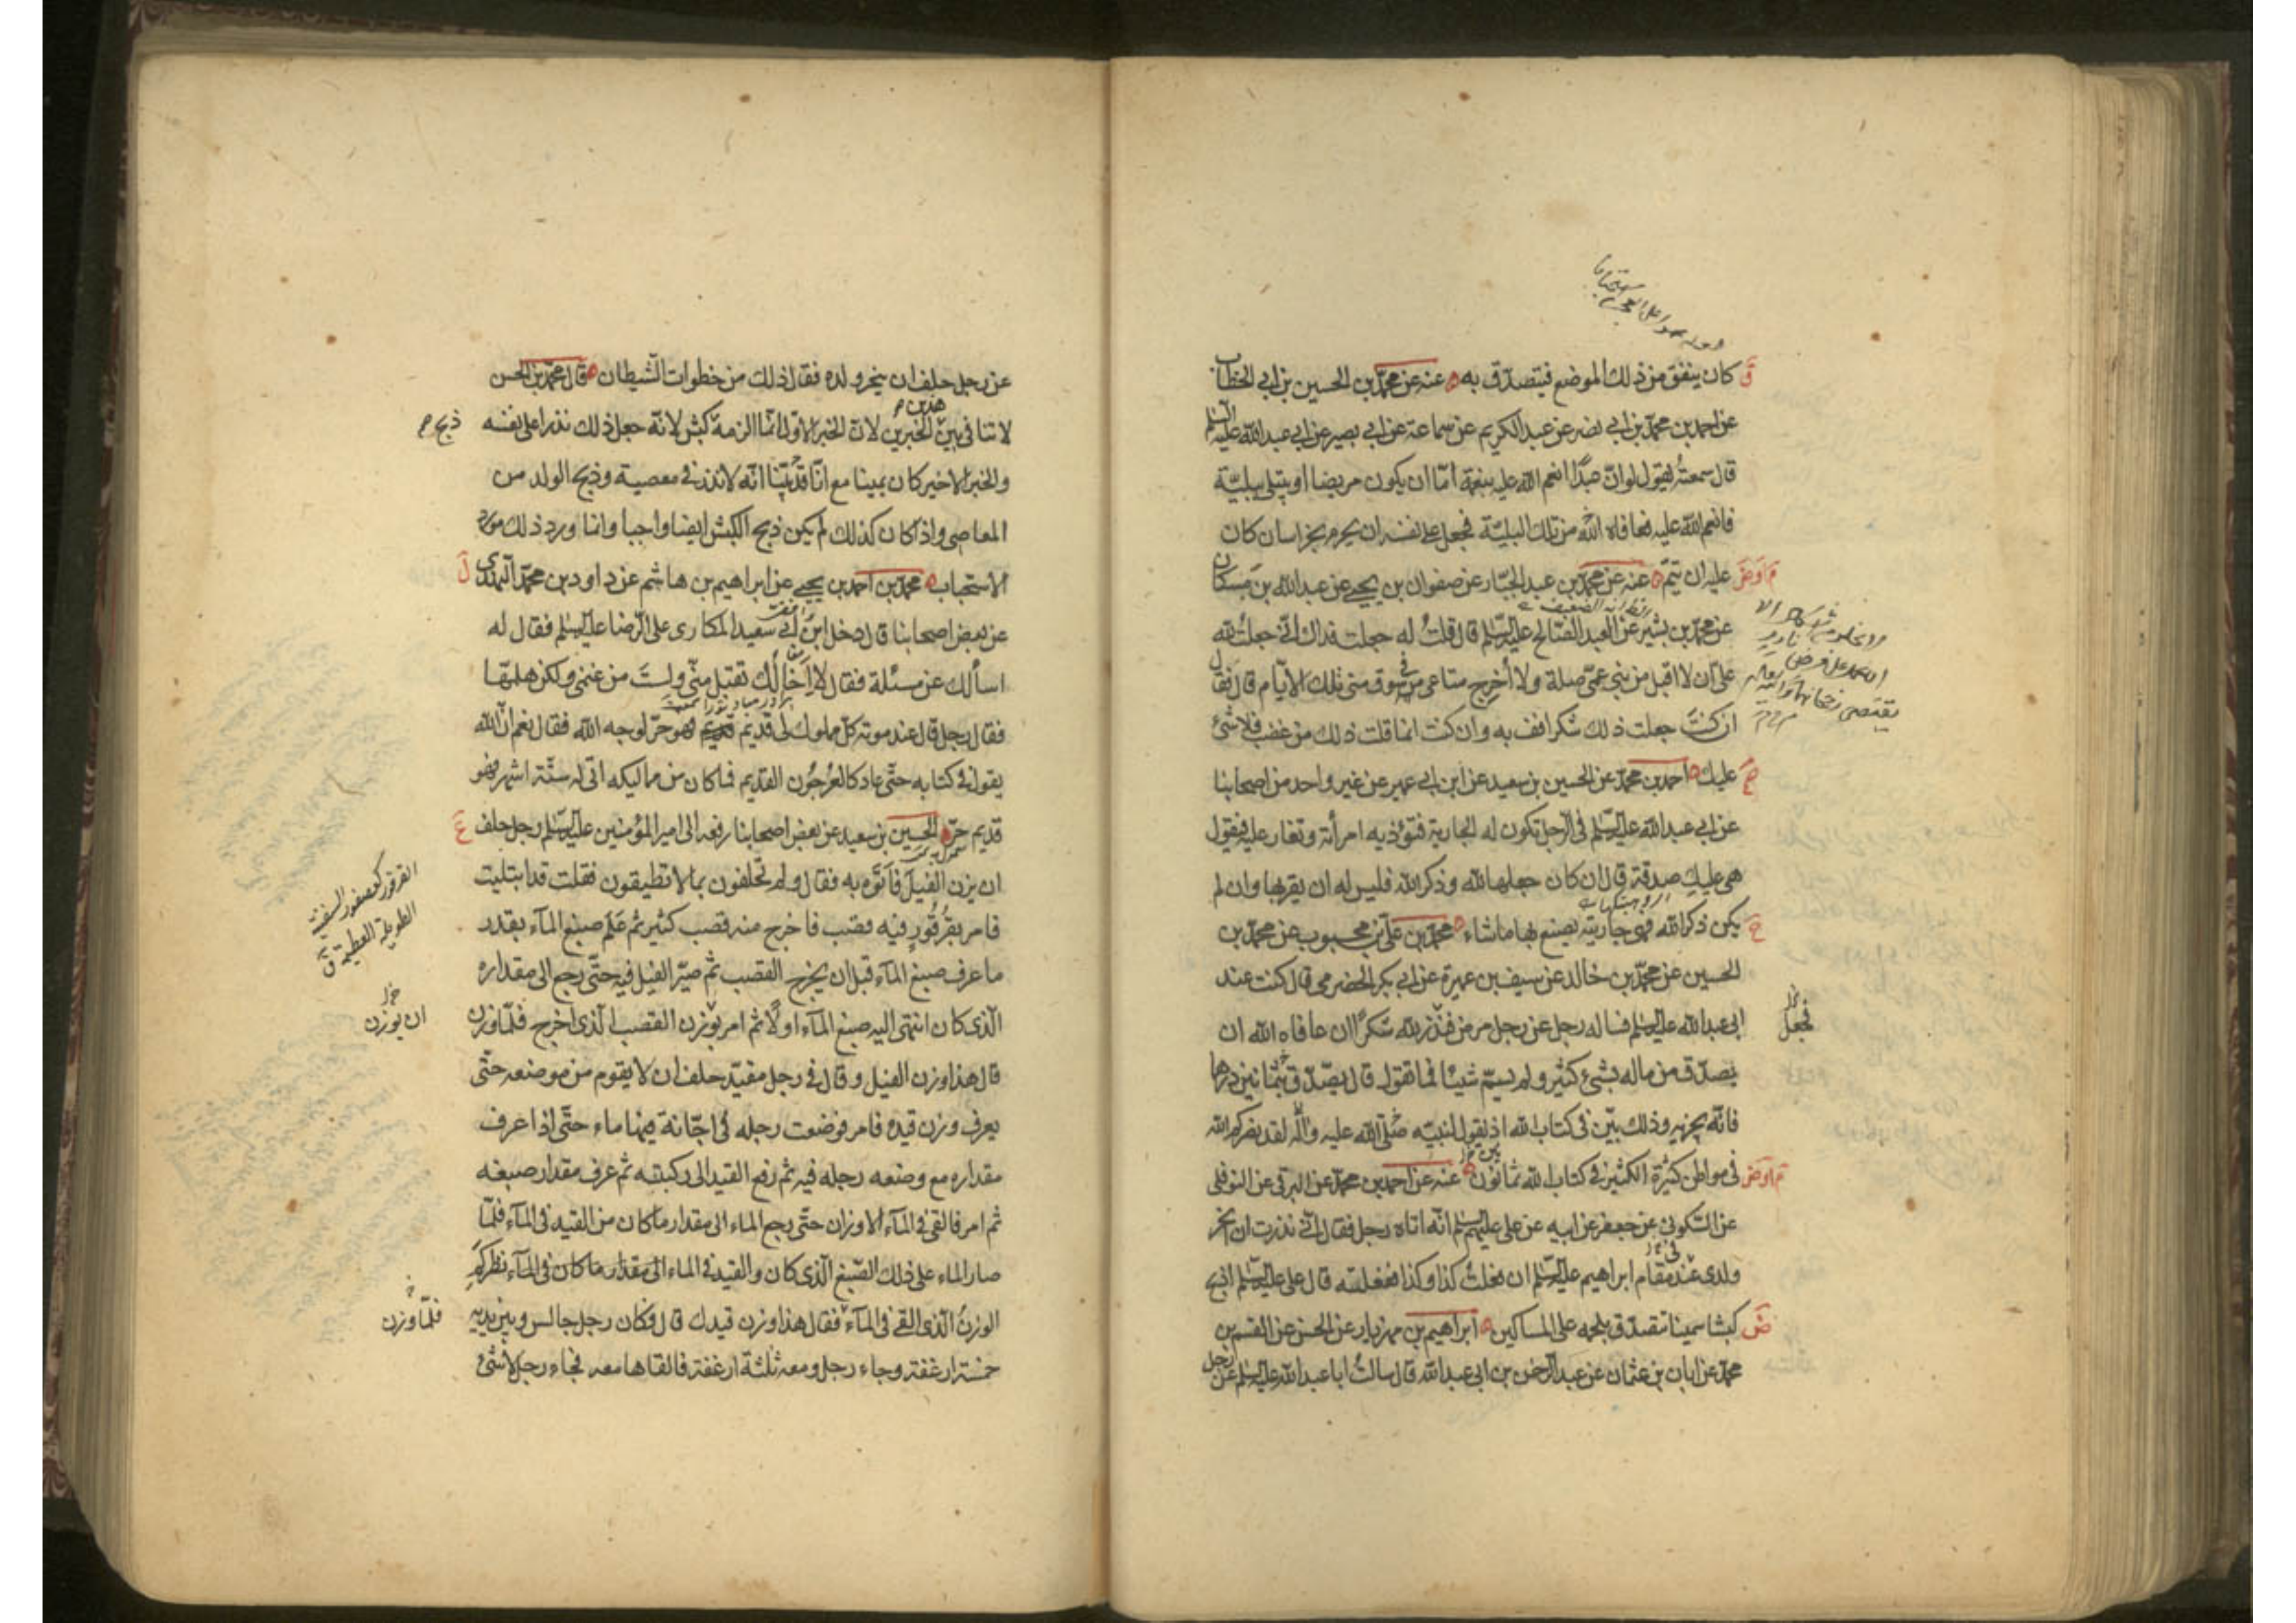 كان ينفق من ذلك الموضع فيتصدق به عنه عن محمد بن الحسين بن ابي الخطاب
عن احمد بن محمد بن ابي نصر عن عبد الكريم عن سماعة عن ابي بصير عن ابي عبد الله عليه السلام
قال سمعته يقول لو ان عبدا انعم الله عليه بنعمة اما ان يكون مريضا او يبتلى ببلية
فانعم الله عليه فعافاه الله من تلك البلية فجعل على نفسه ان يحرم بخراسان كان
عليه ان يتم عنه عن محمد بن عبد الجبار عن صفوان بن يحيى عن عبد الله بن مسكان
عن محمد بن بشير عن العبد الصالح عليه السلام قال قلت له جعلت فداك اني جعلت لله
علي ان لا اقبل من بني عمي صلة ولا أخرج متاعي في سوق منى تلك الايام قال فقال
ان كنت جعلت ذلك شكرا فف به وان كنت انما قلت ذلك من غضب فلا شئ
عليك احمد بن محمد عن الحسين بن سعيد عن ابن ابي عمير عن غير واحد من اصحابنا
عن ابي عبد الله عليه السلام في الرجل تكون له الجارية فتؤذيه امرأته وتغار عليه فيقول
هي عليك صدقة قال ان كان جعلها لله وذكر الله فليس له ان يقربها وان لم
يكن ذكر الله فهي جاريته يصنع بها ما شاء محمد بن علي بن محبوب عن محمد بن
الحسين عن محمد بن خالد عن سيف بن عميرة عن ابي بكر الحضرمي قال كنت عند
ابي عبد الله عليه السلام فساله رجل عن رجل مرض فنذر لله شكرا ان عافاه الله ان
فجعل
يصدق من ماله بشئ كثير ولم يسم شيئا فما تقول قال يصدق بثمانين درهما
فانه يجزيه وذلك بين في كتاب الله اذ يقول لنبيه صلى الله عليه وآله لقد نصركم الله
في مواطن كثيرة الكثير في كتاب الله ثمانون عنه عن احمد بن محمد عن البرقي عن النوفلي
عن السكوني عن جعفر عن ابيه عن علي عليهم السلام انه اتاه رجل فقال اني نذرت ان انحر
ولدي عند مقام ابراهيم عليه السلام ان فعلت كذا وكذا ففعلته قال علي عليه السلام اذبح
كبشا سمينا تتصدق بلحمه على المساكين ابراهيم بن مهزيار عن الحسن عن القسم بن
محمد عن ابان بن عثمان عن عبد الرحمن بن ابي عبد الله قال سالت ابا عبد الله عليه السلام عن رجل
عن رجل حلف ان ينحر ولده فقال ذلك من خطوات الشيطان قال محمد بن الحسن
لا تنافي بين هذين الخبرين لان الخبر الاول انما الزمه كبش لانه جعل ذلك نذرا على نفسه
ذبح
والخبر الاخير كان يمينا مع انا قد بينا انه لا نذر في معصية وذبح الولد من
المعاصي واذا كان كذلك لم يكن ذبح الكبش ايضا واجبا وانما ورد ذلك مورد
الاستحباب محمد بن احمد بن يحيى عن ابراهيم بن هاشم عن داود بن محمد النهدي
عن بعض اصحابنا قال دخل ابن ابي سعيد المكاري على الرضا عليه السلام فقال له
اسألك عن مسئلة فقال لا إخالك تقبل مني ولست من غنمي ولكن هلمها
فقال رجل قال عند موته كل مملوك لي قديم فهو حر لوجه الله فقال نعم ان الله
يقول في كتابه حتى عاد كالعرجون القديم فما كان من مماليكه اتى له ستة اشهر فهو
قديم حر الحسين بن سعيد عن بعض اصحابنا رفعه الى امير المؤمنين عليه السلام رجل حلف
ان يزن الفيل فاتوه به فقال ولم تحلفون بما لا تطيقون فقلت قد ابتليت
القرقور كعصفور السفينة
الطويلة العظيمة ق
فامر بقرقور فيه قصب فاخرج منه قصب كثير ثم علم صبغ المآء بقدر
ما عرف صبغ المآء قبل ان يخرج القصب ثم صير الفيل فيه حتى رجع الى مقداره
الذي كان انتهى اليه صبغ المآء اولا ثم امر بوزن القصب الذي اخرج فلما وزن
ان يوزن
قال هذا وزن الفيل وقال في رجل مقيد حلف ان لا يقوم من موضعه حتى
يعرف وزن قيده فامر فوضعت رجله في اجانة فيها ماء حتى اذا عرف
مقداره مع وضعه رجله فيه ثم رفع القيد الى ركبته ثم عرف مقدار صبغه
ثم امر فالقي في المآء الاوزان حتى رجع الماء الى مقدار ما كان من القيد في المآء فلما
صار الماء على ذلك الصبغ الذي كان والقيد في الماء الى مقدار ما كان في المآء نظر كم
الوزن الذي القي في المآء فقال هذا وزن قيدك قال وكان رجل جالس وبين يديه
فلما وزن
خمسة ارغفة وجاء رجل ومعه ثلثة ارغفة فالقاها معه فجاء رجل لا شئ